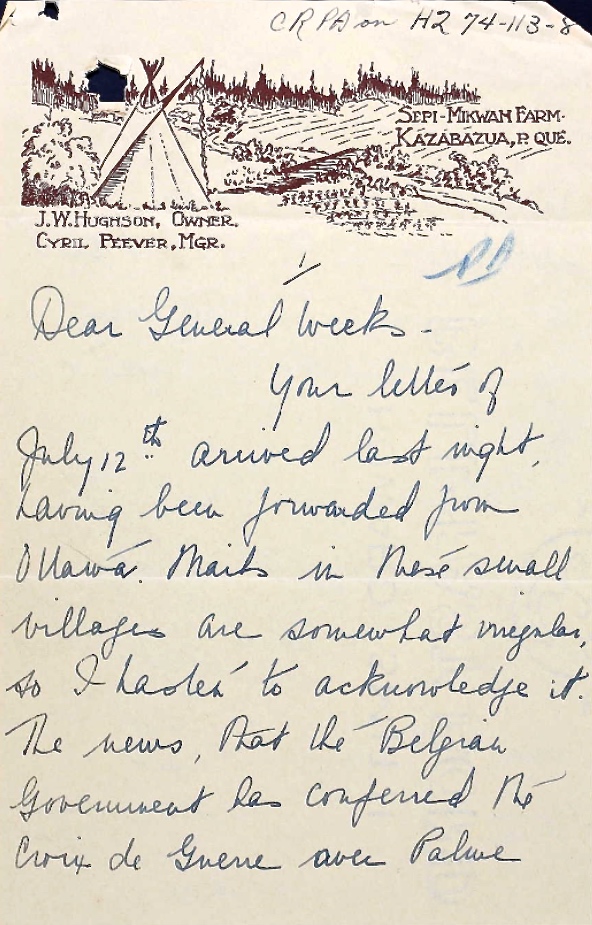 CRPA on H2 74-113-8
SEPI-MIKWAN FARM.
KAZABAZUA, P. QUE.
J.W. HUGHSON, OWNER.
CYRIL PEEVER, MGR.
PA
1
Dear General Weeks -
Your letter of
July 12th arrived last night,
having been forwarded from
Ottawa. Mails in these small
villages are somewhat irregular,
so I hasten to acknowledge it.
The news, that the Belgian
Government has conferred the
Croix de Guerre avec Palme